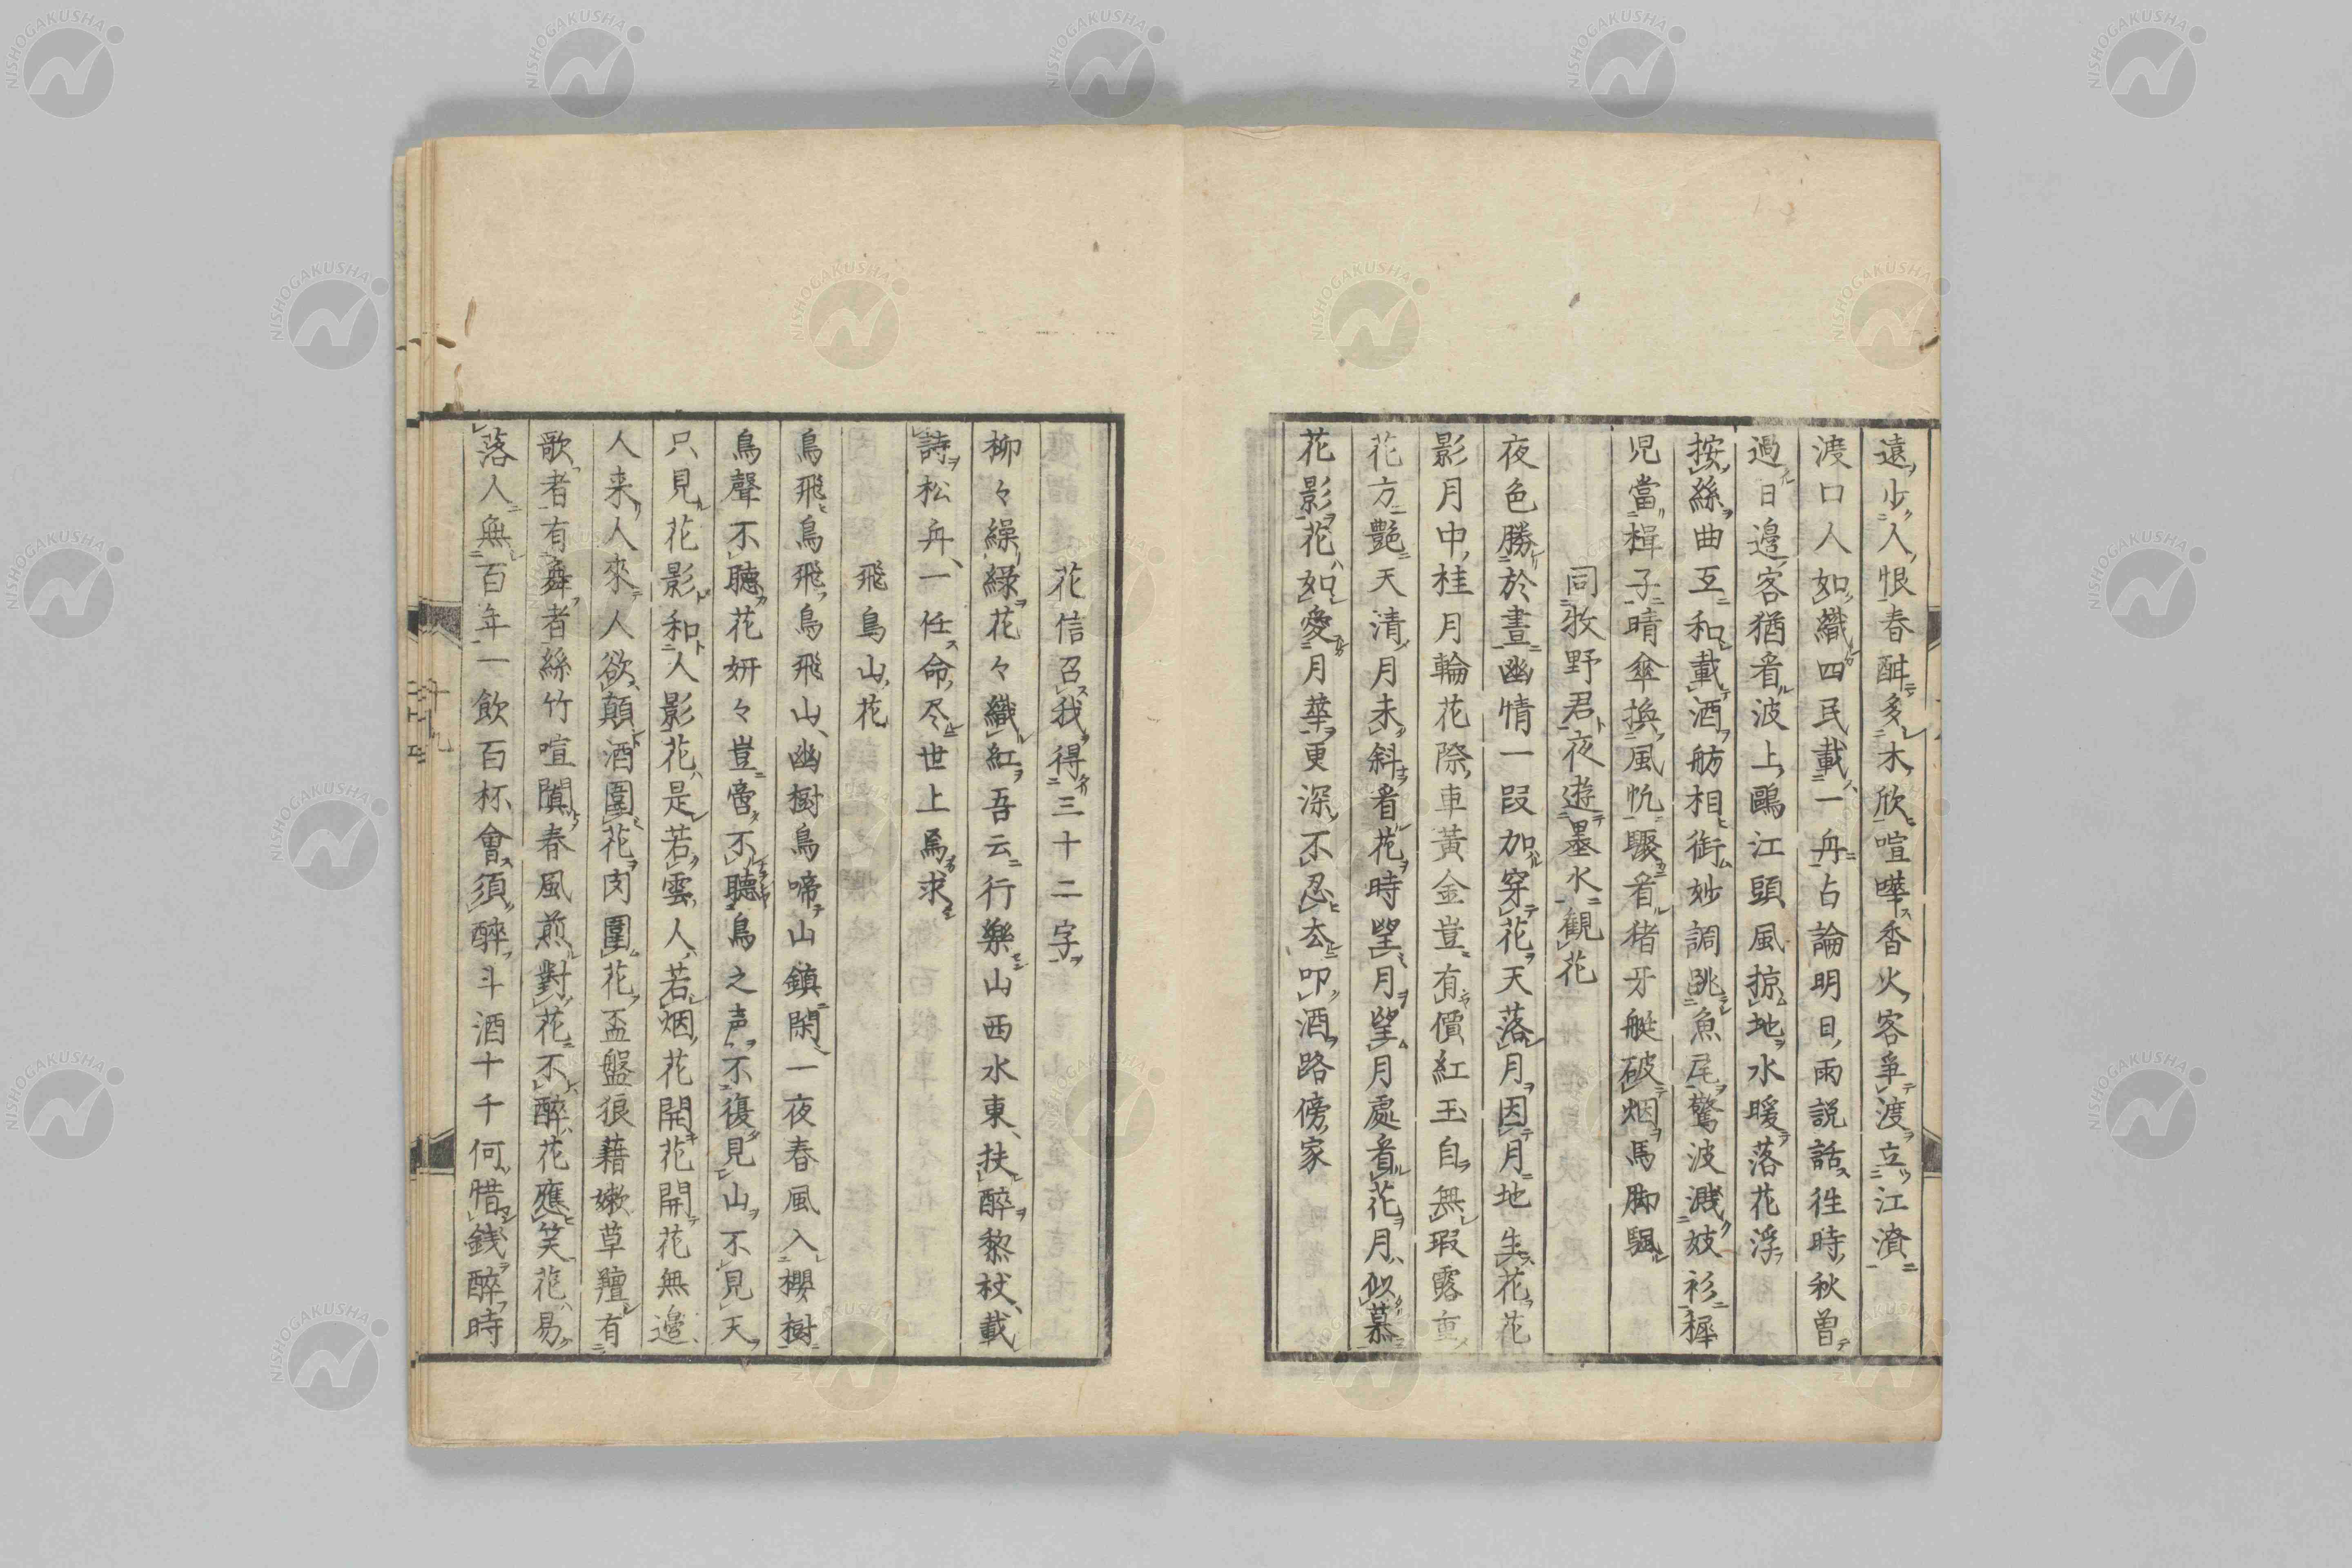 遠少人恨春酣多木欣喧嘩香火客爭渡立江濆
渡口人如織四民載一舟占論明日雨説話徃時秋曽
過日邉客猶看波上鷗江頭風掠地水暖落花浮
按絲曲互和載酒舫相銜妙調跳魚尾驚波濺妓衫穉
児當楫子晴傘換風帆驟看猪牙艇破烟馬脚颿
同牧野君夜遊墨水観花
夜色勝於晝幽情一段加穿花天落月因月地生花花
影月中桂月輪花際車黃金豈有價紅玉自無瑕露重
花方艷天清月未斜看花時望月望月處看花月似慕
花影花如愛月華更深不忍去叩酒路傍家
花信召我得三十二字
柳々繰綠花々織紅吾云行樂山西水東扶醉黎杖載
詩松舟一任命尽世上馬求
飛鳥山花
鳥飛鳥飛鳥飛山幽樹鳥啼山鎮閑一夜春風入櫻樹
鳥聲不聴花妍々豈啻不聴鳥之声不復見山不見天
只見花影和人影花是若雲人若烟花開花開花無邉
人来人來人欲顛酒圍花肉圍花盃盤狼藉嫩草羶有
歌者有舞者絲竹喧闐春風煎對花不醉花應笑花易
落人無百年一飲百杯會須醉斗酒十千何惜銭醉時
NISHOGAKUSHA